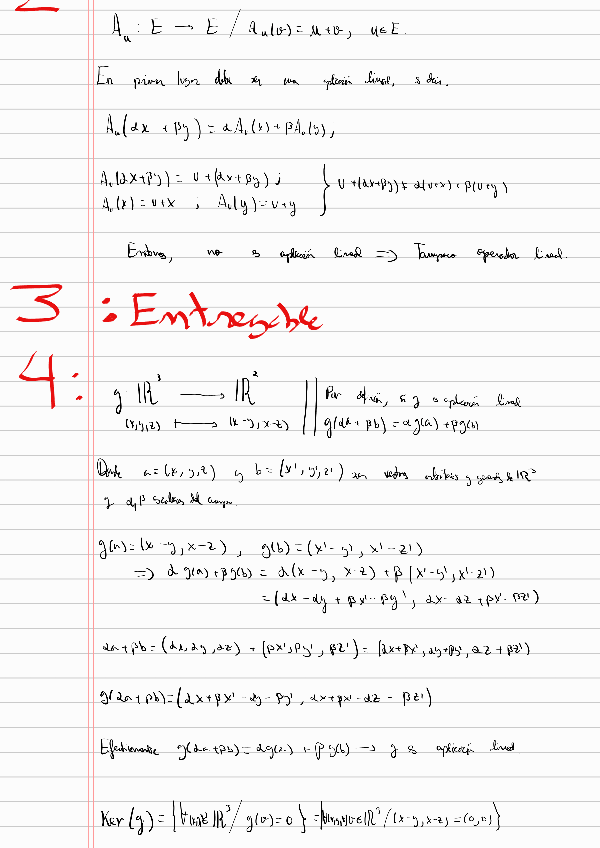 A_u : E → E / A_u(v) = u+v, u∈E.
En primer lugar debe ser una aplicación lineal, es decir.
A_u(αx + βy) = αA_u(x) + βA_u(y),
A_u(αx+βy) = u+(αx+βy) ; } u+(αx+βy) ≠ α(u+x) + β(u+y)
A_u(x) = u+x ; A_u(y) = u+y
Entonces, no es aplicación lineal => Tampoco operador lineal.
3 : Entregable
4:
g ℝ³ → ℝ² || Por definición, si g es aplicación lineal
(x,y,z) ↦ (x-y, x-z) || g(αa + βb) = αg(a) + βg(b)
Donde a=(x,y,z) y b=(x',y',z') son vectores arbitrarios y generales de ℝ³
y α,β escalares del cuerpo.
g(a)=(x-y, x-z) , g(b)=(x'-y', x'-z')
=> αg(a)+βg(b) = α(x-y, x-z) + β(x'-y', x'-z')
=(αx-αy + βx'-βy', αx-αz+βx'-βz')
αa+βb=(αx,αy,αz) + (βx',βy',βz') = (αx+βx', αy+βy', αz+βz')
g(αa+βb)=(αx+βx'-αy-βy', αx+βx'-αz-βz')
Efectivamente g(αa+βb)=αg(a)+βg(b) → g es aplicación lineal
Ker(g) = { ℝ³/ g(v)=0 } = ℝ³/(x-y, x-z)=(0,0)}